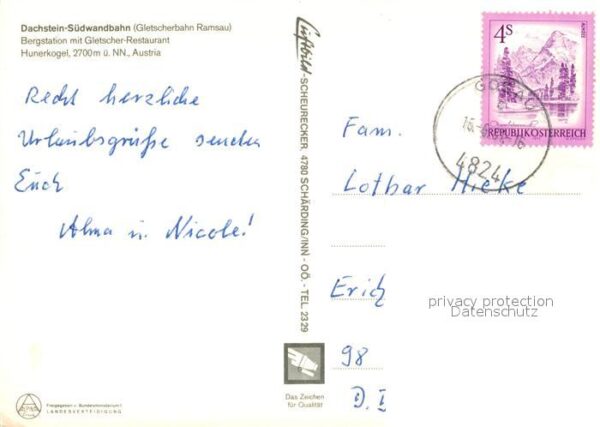 Dachstein-Südwandbahn (Gletscherbahn Ramsau)
Bergstation mit Gletscher-Restaurant
Hunerkogel, 2700m ü. NN., Austria
Recht herzliche
Urlaubsgrüße senden
Euch
Alma u. Nicole!
Luftbild-SCHEURECKER 4780 SCHÄRDING/INN - OÖ. - TEL. 2329
4S
REPUBLIK ÖSTERREICH
GOSAU
4824
Fam.
Lothar Hieke
Erich
98
D.
privacy protection
Datenschutz
Das Zeichen
für Qualität
Freigegeben v. Bundesministerium f.
LANDESVERTEIDIGUNG